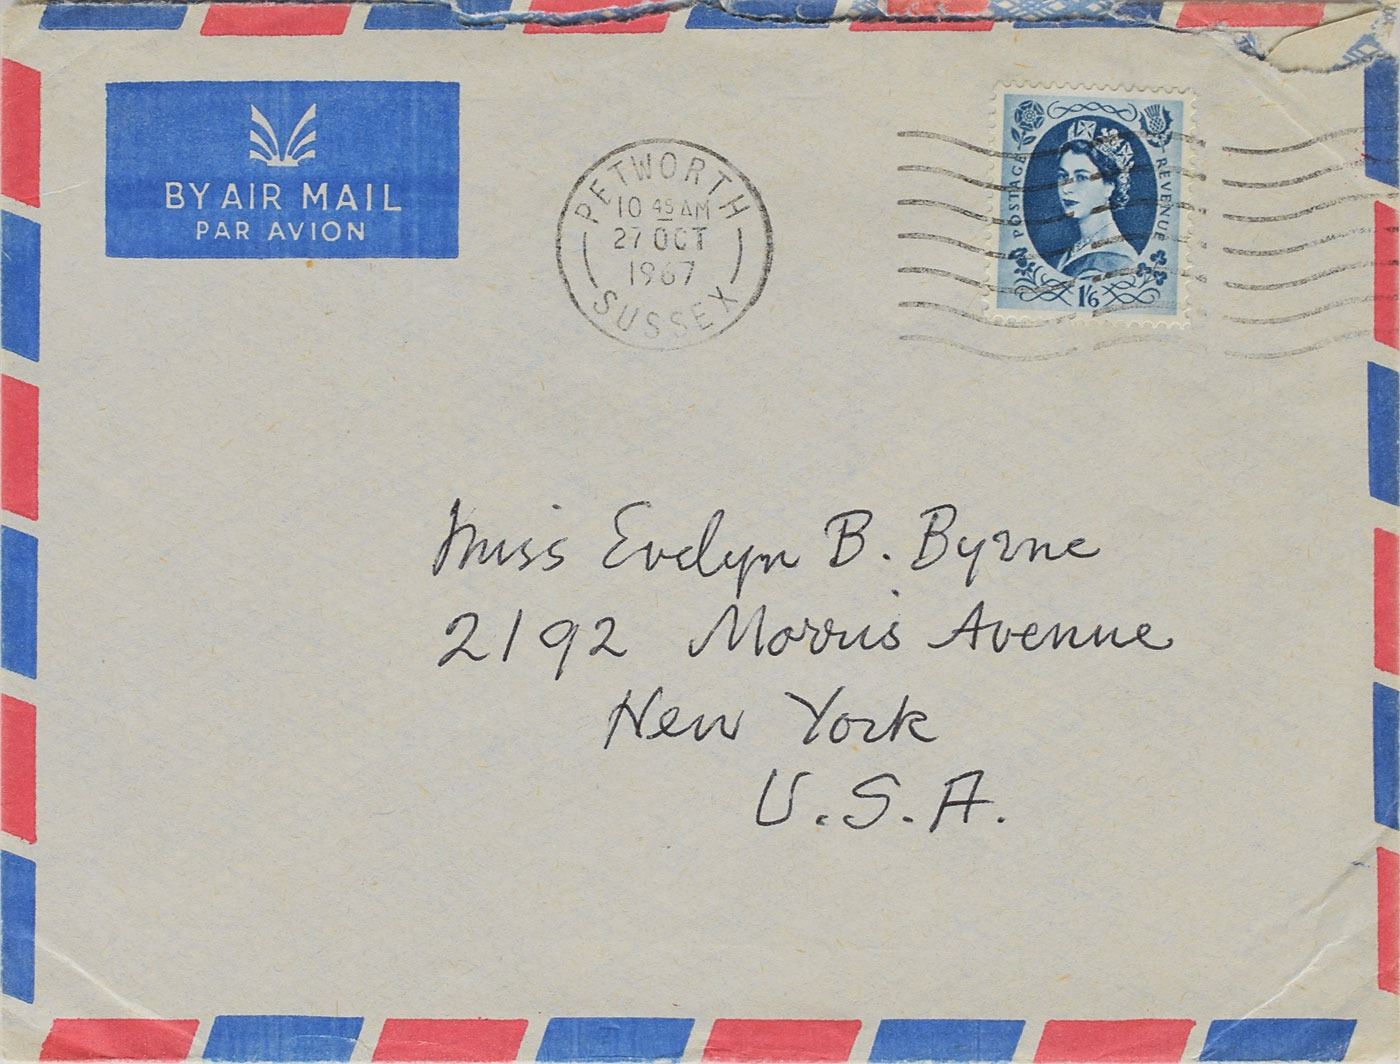 BY AIR MAIL
PAR AVION
PETWORTH
10 45 AM
27 OCT
1967
SUSSEX
POSTAGE
REVENUE
1/6
Miss Evelyn B. Byrne
2192 Morris Avenue
New York
U.S.A.